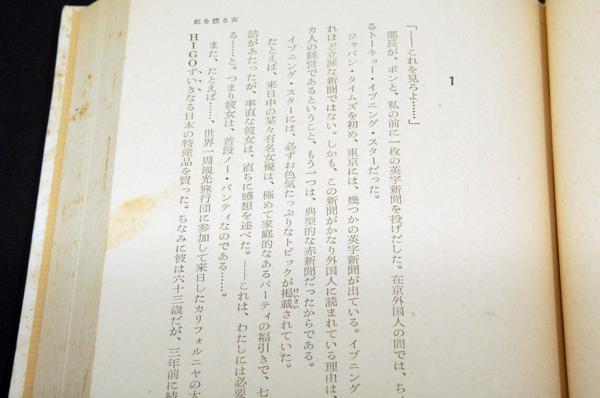 虹を渡る女
1
「――これを見ろよ……」
部長が、ポンと、私の前に一枚の英字新聞を投げだした。在京外国人の間では、ち
るトーキョー・イブニング・スターだった。
ジャパン・タイムズを初め、東京には、幾つかの英字新聞が出ている。イブニング
れほど立派な新聞ではない。しかも、この新聞がかなり外国人に読まれている理由は、
カ人の経営であるということ、もう一つは、典型的な赤新聞だったからである。
イブニング・スターには、必ずお色気たっぷりなトピックが掲載されていた。
たとえば、来日中の某々有名女優は、極めて家庭的なあるパーティの福引きで、七
詰があたったが、率直な彼女は、直ちに感想を述べた。――これは、わたしには必要
る……と。つまり彼女は、普段ノー・パンティなのである……。
また、たとえば……、世界一周観光旅行団に参加して来日したカリフォルニヤの大
HIGOずいきなる日本の特産品を買った。ちなみに彼は六十三歳だが、三年前に結